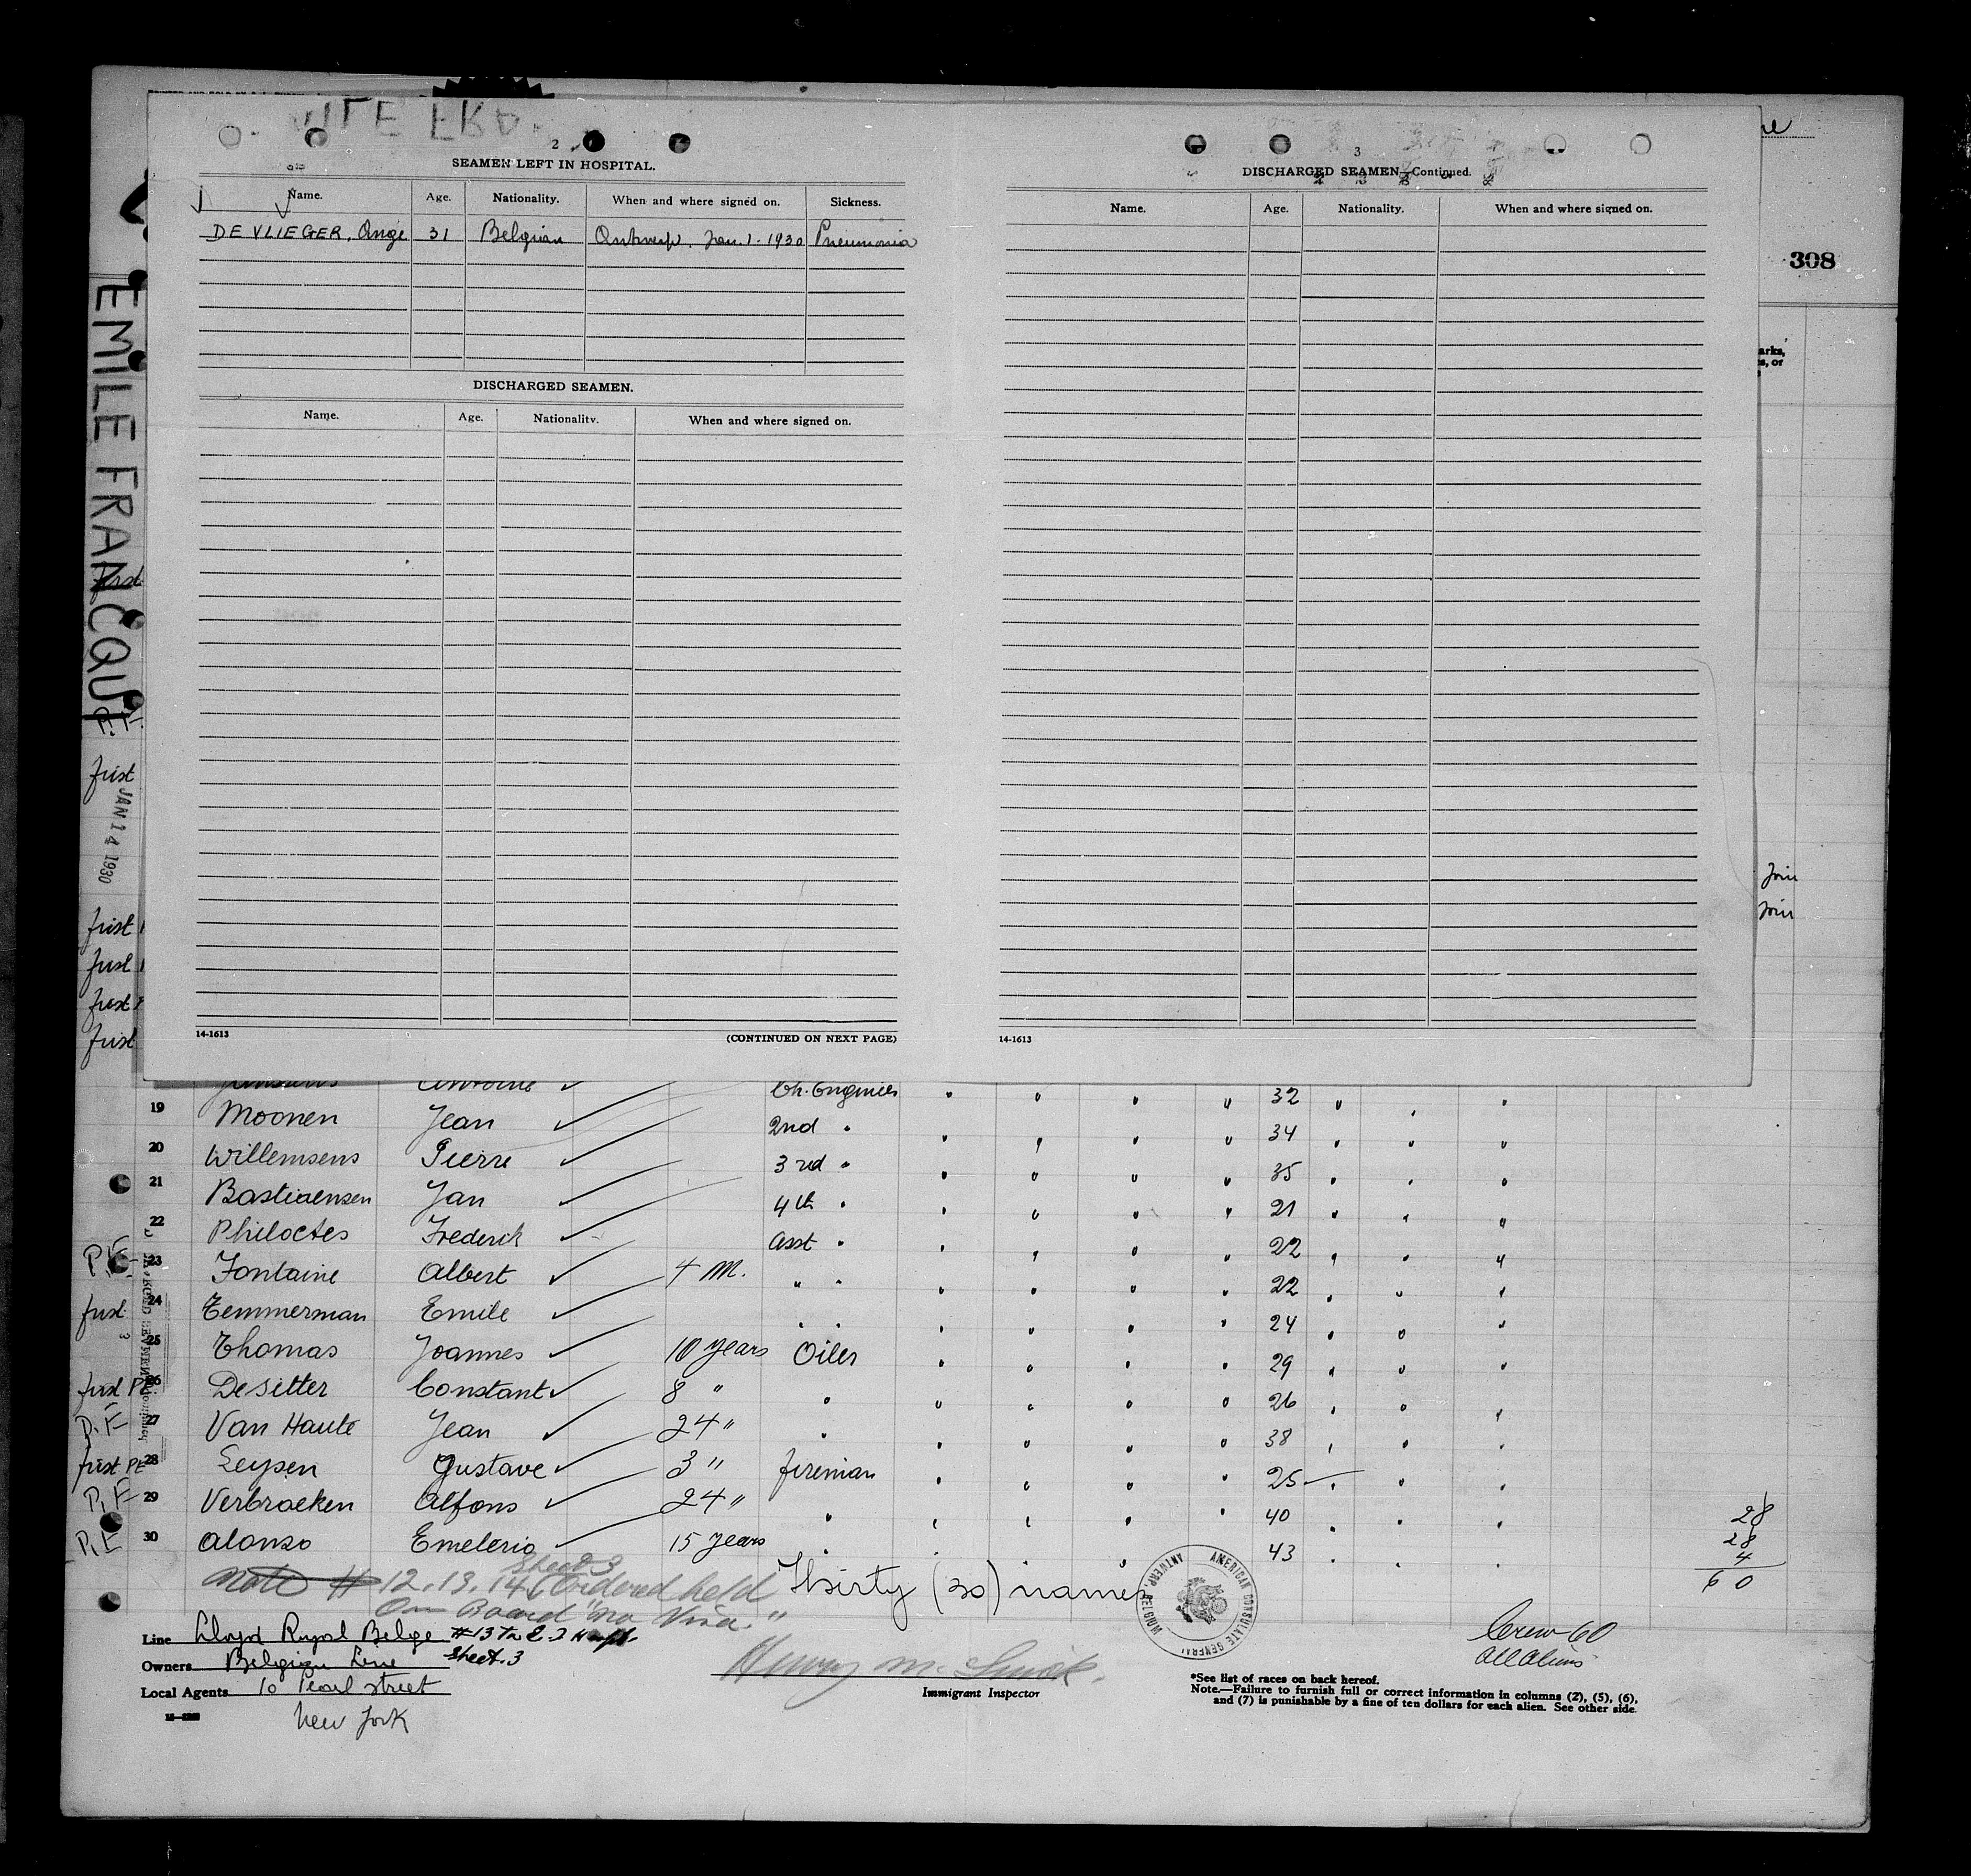 2
SEAMEN LEFT IN HOSPITAL.
Name. Age. Nationality. When and where signed on. Sickness.
DE VLIEGER, Ange 31 Belgian Antwerp. Jan. 1. 1930 Pneumonia
DISCHARGED SEAMEN.
Name. Age. Nationality. When and where signed on.
14-1613 (CONTINUED ON NEXT PAGE)
3
DISCHARGED SEAMEN—Continued.
Name. Age. Nationality. When and where signed on.
14-1613
308
EMILE FRANCQUI
P.E
first
JAN 14 1930
first
first
first
first
Join
Join
Antoine Ch. Engineer 32
19 Moonen Jean 2nd " 34
20 Willemsens Pierre 3rd " 35
21 Bastiaensen Jan 4th " 21
22 Philoctes Frederik asst " 22
P.E 23 Fontaine Albert 4 M. " " 22
first 24 Temmerman Emile " " 24
25 Thomas Joannes 10 years Oiler 29
first PE 26 De Sitter Constant 8 " " 26
P.E 27 Van Haute Jean 24 " " 38
first PE 28 Leysen Gustave 3 " fireman 25
P.E 29 Verbraeken Alfons 24 " " 40
P.E 30 Alonso Emelerio 15 years " 43
28
28
4
60
Sheet 3
Note # 12.13.14 Ordered held
On Board "no Visa."
Thirty (30) names
AMERICAN CONSULATE GENERAL
ANTWERP, BELGIUM
Line Lloyd Royal Belge #13
Sheet.3
Owners Belgian Line
Local Agents 10 Pearl street
New York
Immigrant Inspector
Crew 60
all aliens
*See list of races on back hereof.
Note.—Failure to furnish full or correct information in columns (2), (5), (6),
and (7) is punishable by a fine of ten dollars for each alien. See other side.